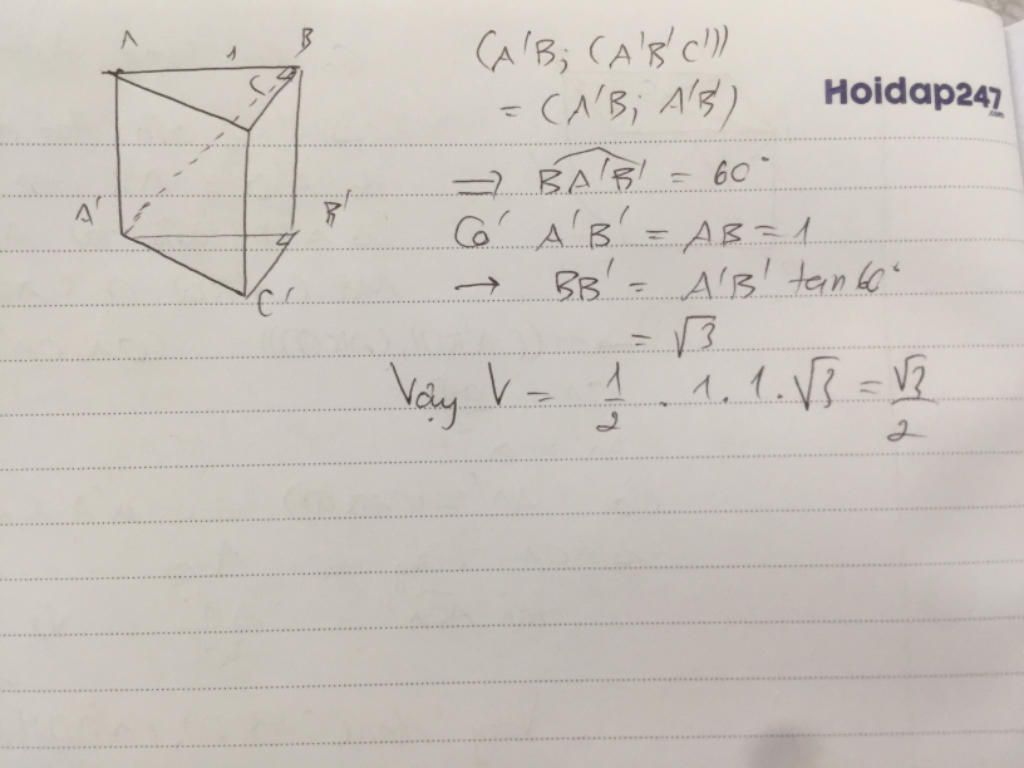 A 1 B
C
A' B'
C'
(A'B; (A'B'C'))
= (A'B; A'B')
Hoidap247
.com
⇒ BA'B' = 60°
Có A'B' = AB = 1
→ BB' = A'B' tan60°
= √3
Vậy V = 1/2 . 1. 1. √3 = √3/2